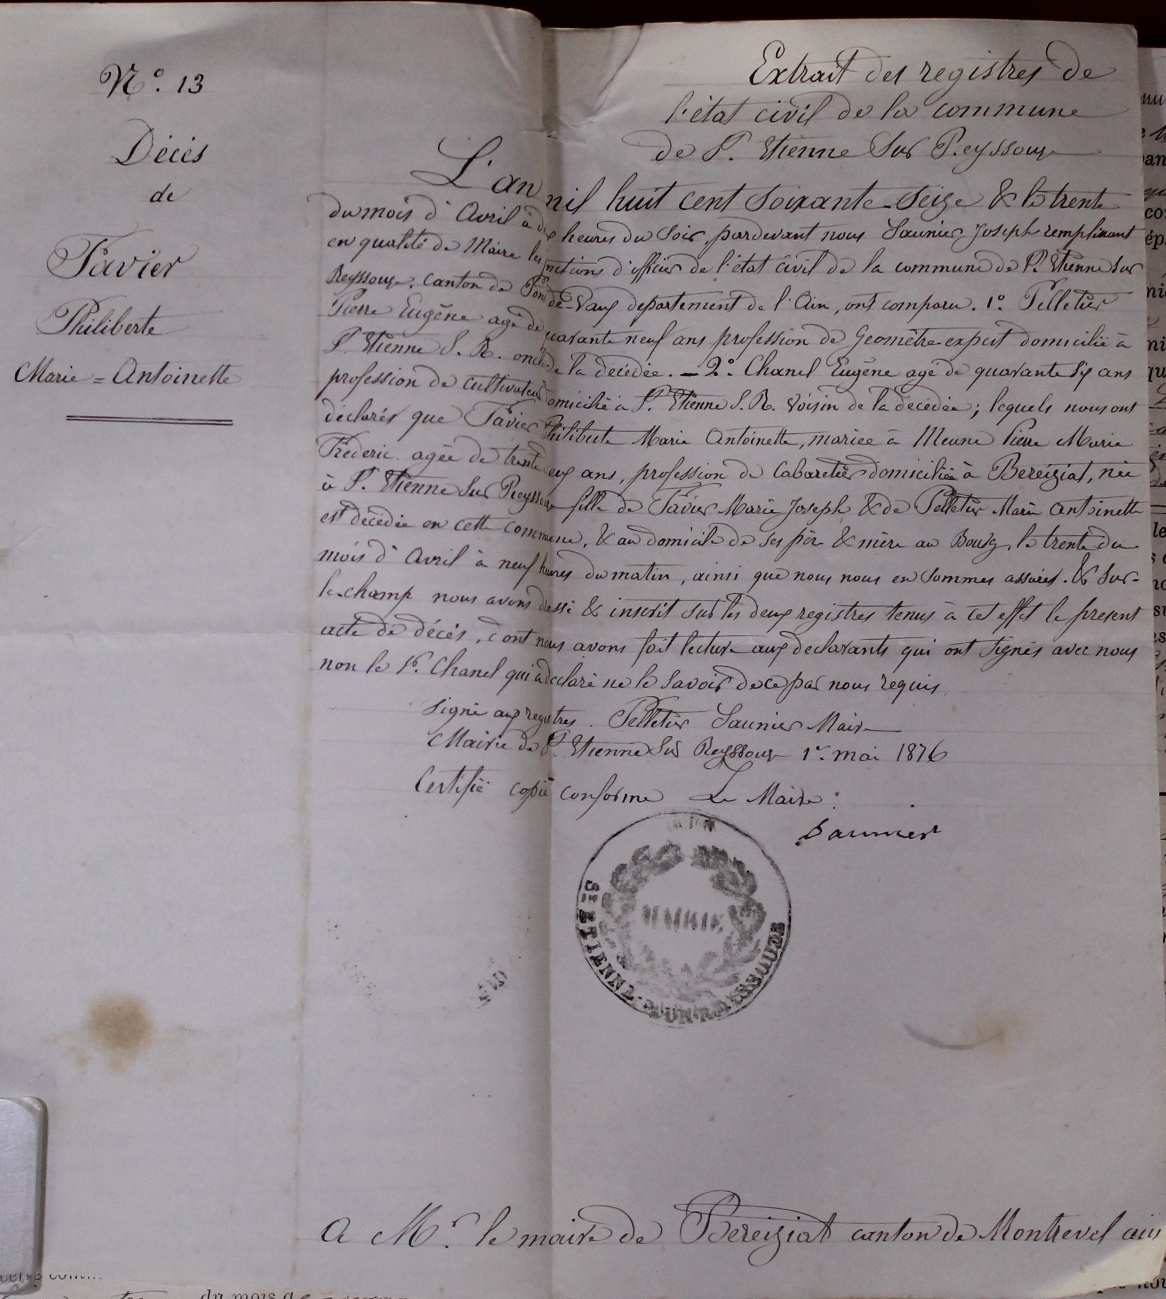 N.° 13
Décès
de
Favier
Philiberte
Marie = Antoinette
Extrait des registres de
l'état civil de la commune
de St. Etienne Sur Reyssouze
L'an mil huit cent soixante-seize & le trente
du mois d'Avril à dix heures du soir, pardevant nous Saunier Joseph remplissant
en qualité de Maire les fonctions d'officier de l'état civil de la commune de St. Etienne Sur
Reyssouze, canton de Pont-de-Vaux departement de l'Ain, ont comparu. 1.° Pelletier
Pierre Eugène agé de quarante neuf ans profession de Geomètre expert domicilié à
St. Etienne S. R. oncle de la décédée. — 2.° Chanel Eugène agé de quarante six ans
profession de cultivateur domicilié à St. Etienne S. R. voisin de la décédée; lequels nous ont
déclarés que Favier Philiberte Marie Antoinette, mariée à Meune Pierre Marie
Fréderic. agée de trente deux ans, profession de Cabaretièr domiciliée à Bereiziat, née
à St. Etienne Sur Reyssouze fille de Favier Marie Joseph & de Pelletier Marie Antoinette
est décédée en cette commune, & au domicile de ses père & mère au Bourg, le trente du
mois d'Avril à neuf heures du matin, ainsi que nous nous en sommes assurés. & sur-
le-champ nous avons dressé & inscrit sur les deux registres tenus à cet effet le present
acte de décés, dont nous avons fait lecture aux declarants qui ont signés avec nous
non le Sr. Chanel qui a déclaré ne le savoir de ce par nous requis.
Signé aux registres. Pelletier Saunier Maire
Mairie de St. Etienne Sur Reyssouze 1er. mai 1876
Certifié copie conforme Le Maire:
Saunier
MAIRIE
ST. ETIENNE-SUR-REYSSOUZE
A Mr. le maire de Bereiziat canton de Montrevel ain